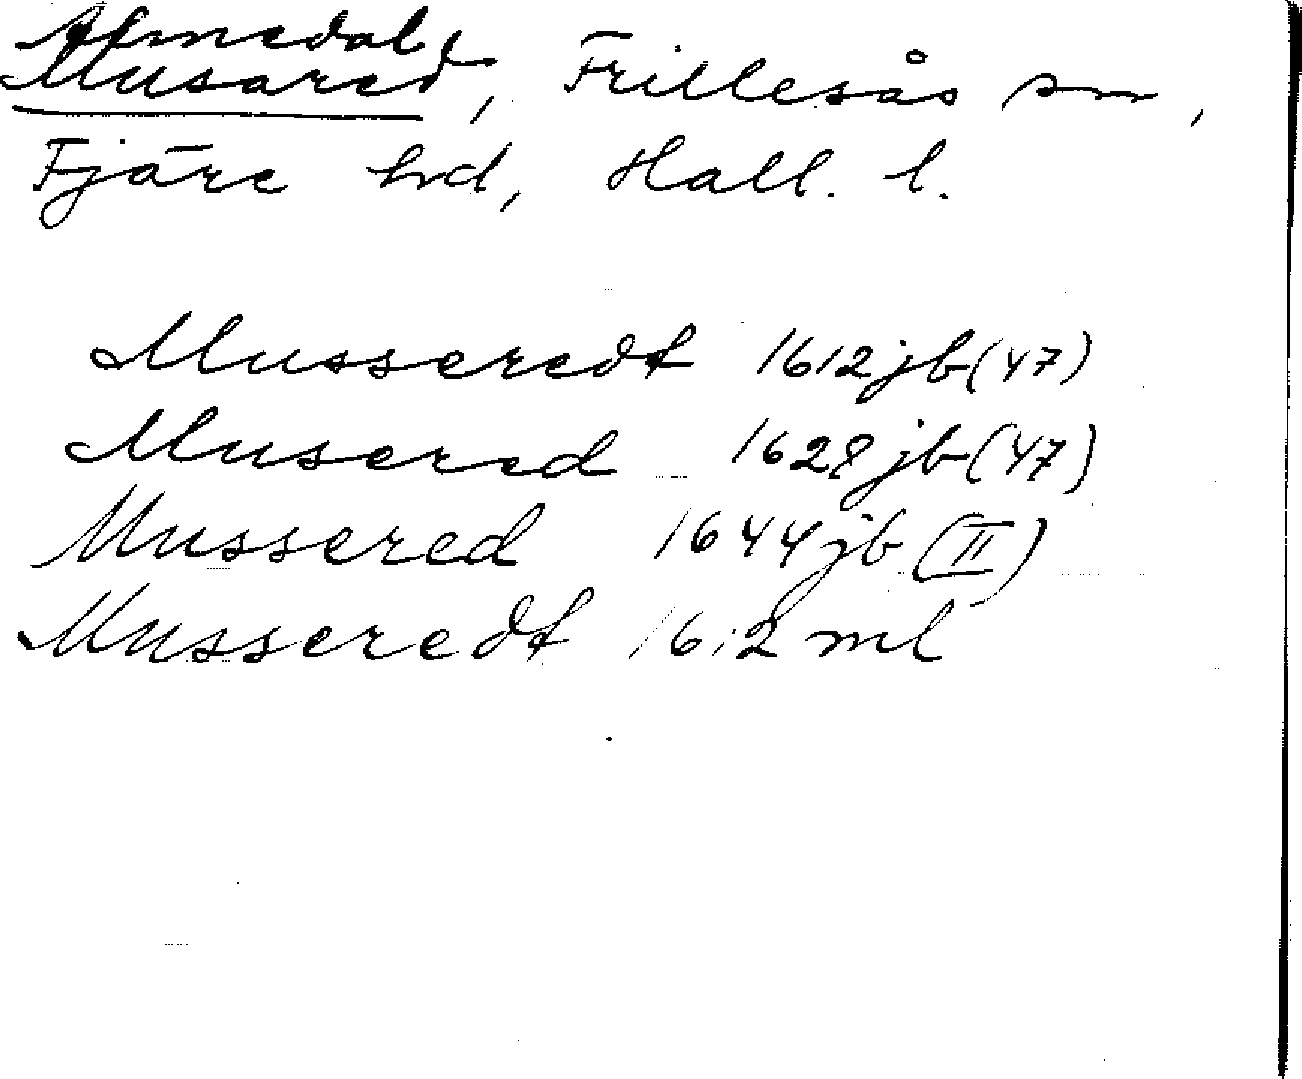 Almedal
Musared, Frillesås sn,
Fjäre hd, Hall. l.
Musseredt 1612 jb (47)
Musered 1628 jb (47)
Mussered 1644 jb (II)
Musseredt 1612 ml